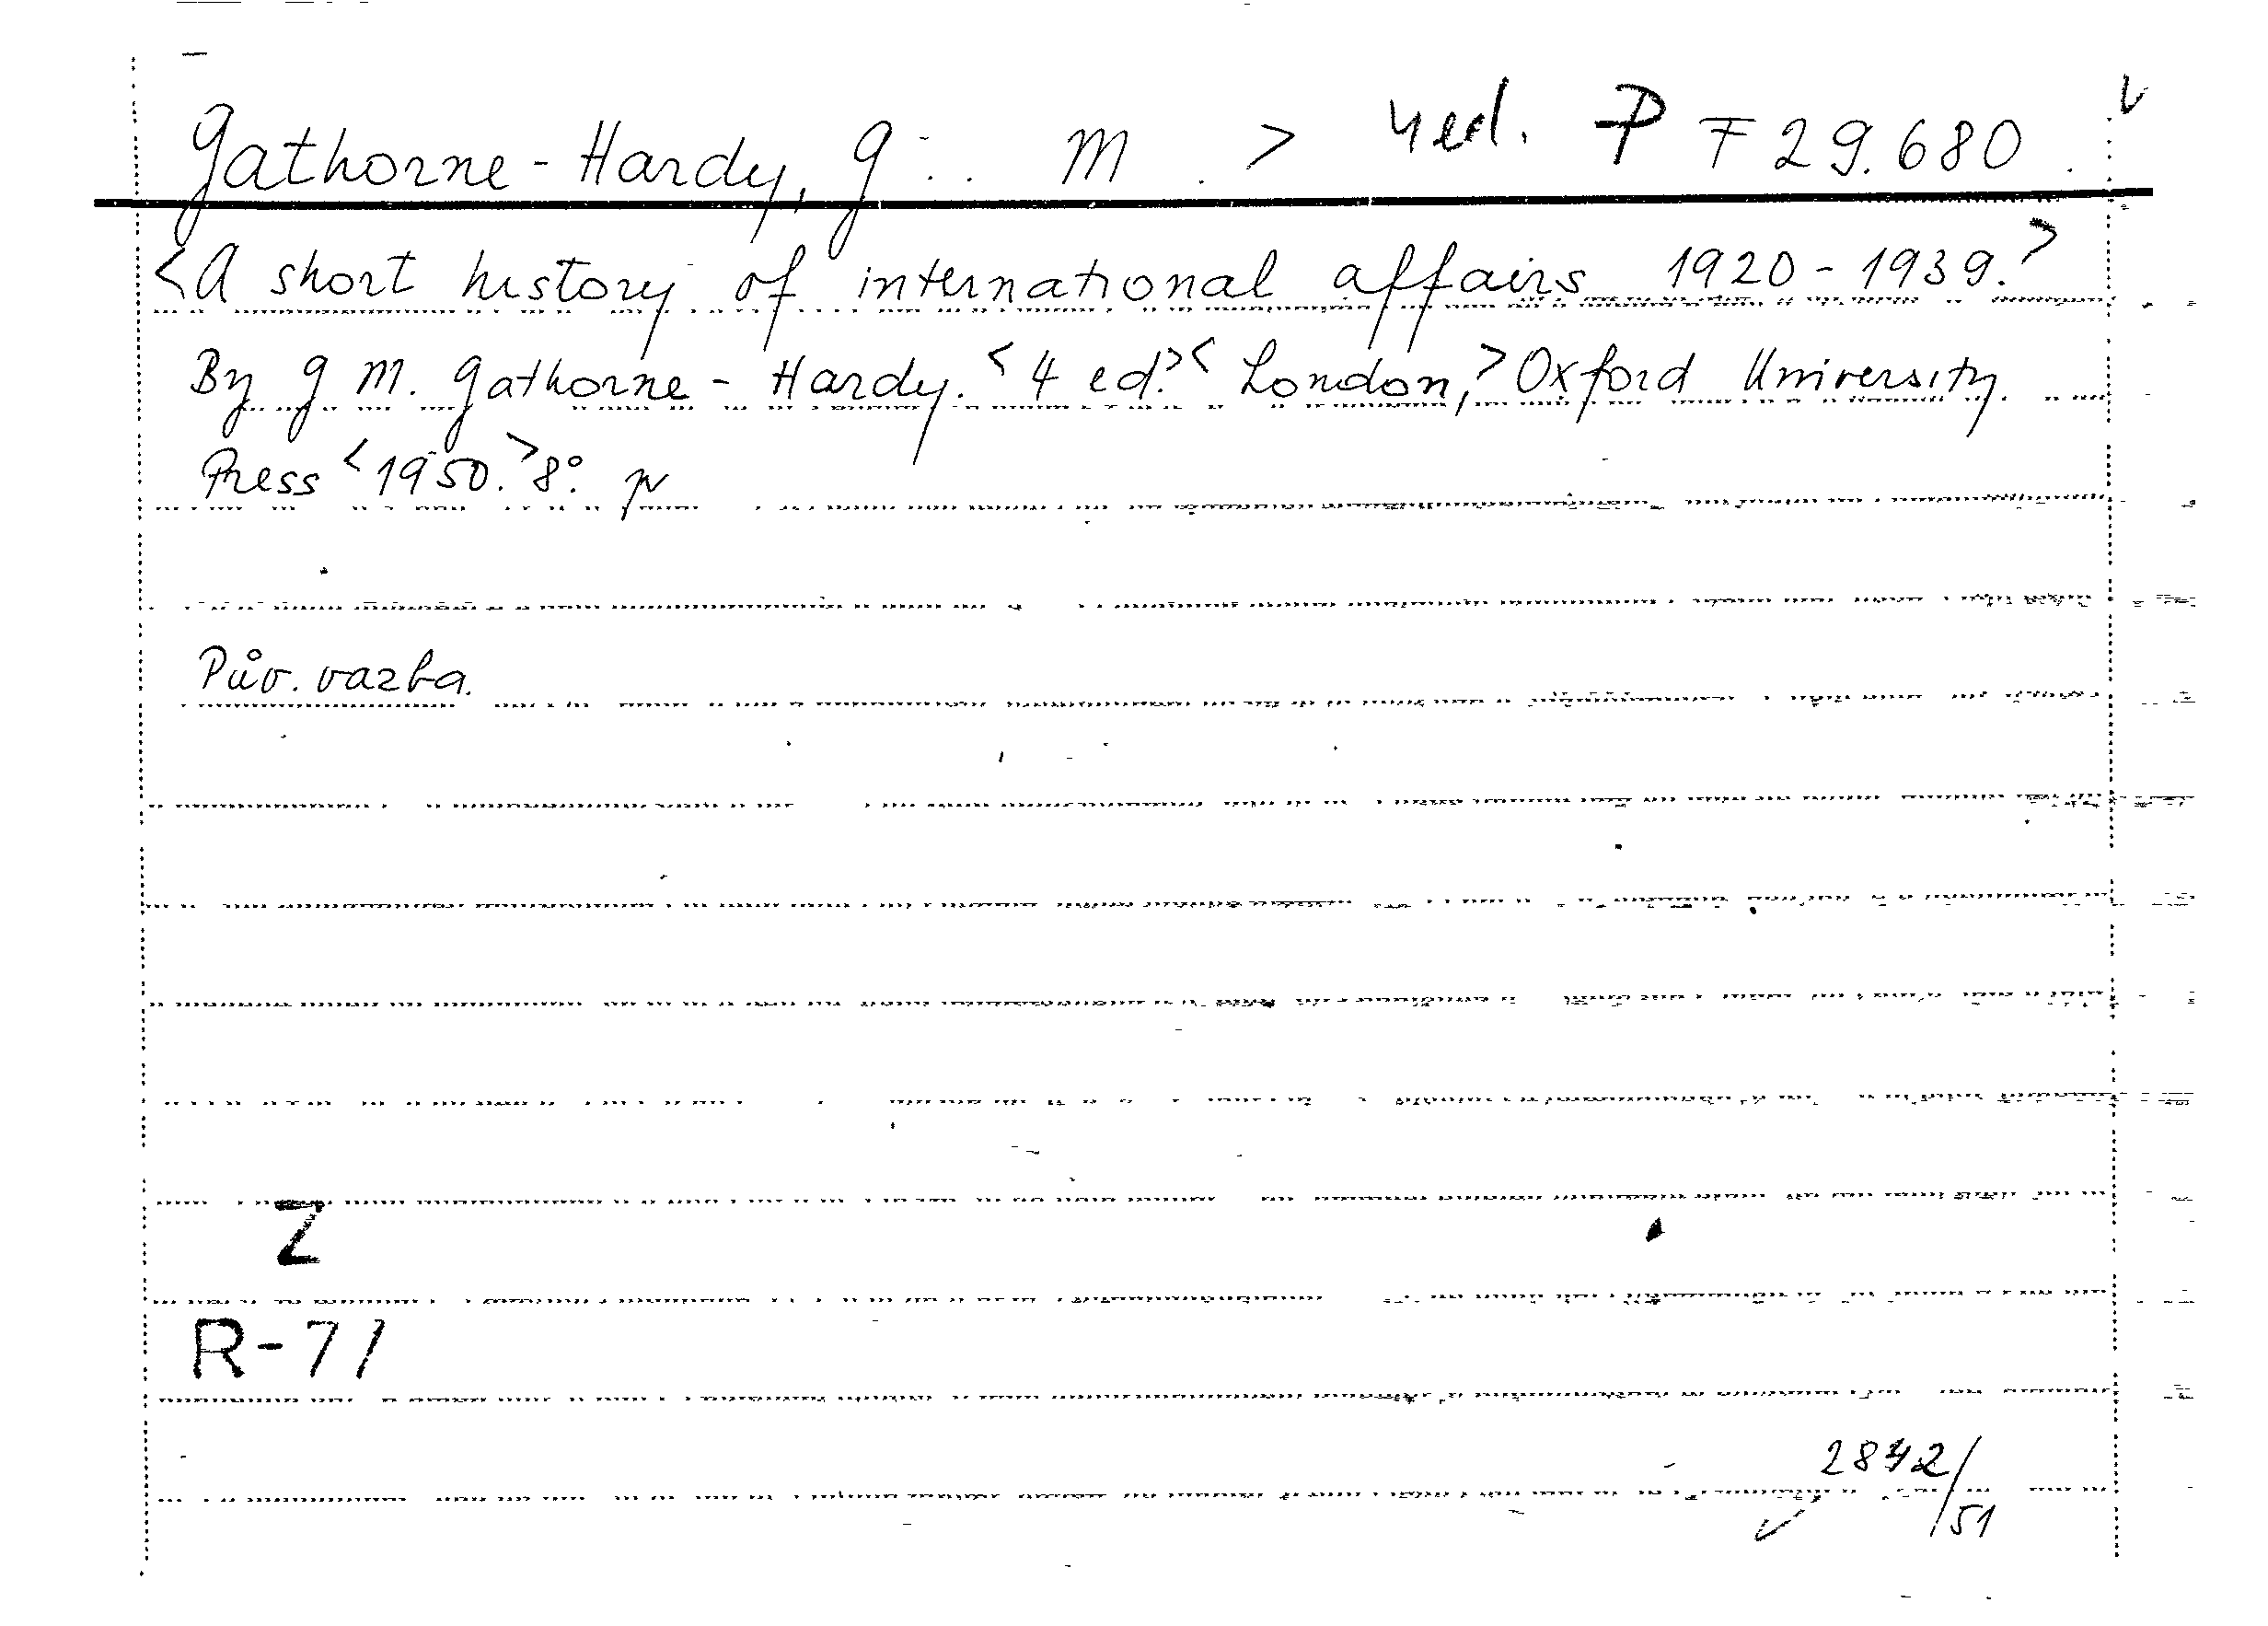 Gathorne-Hardy, G.. M. > 4 ed. P F 29.680.
<A short history of international affairs 1920-1939.>
By G M. Gathorne-Hardy. <4 ed.> <London,> Oxford University
Press <1950.> 8°.
Pův. vazba.
Z
R-71
2842/51